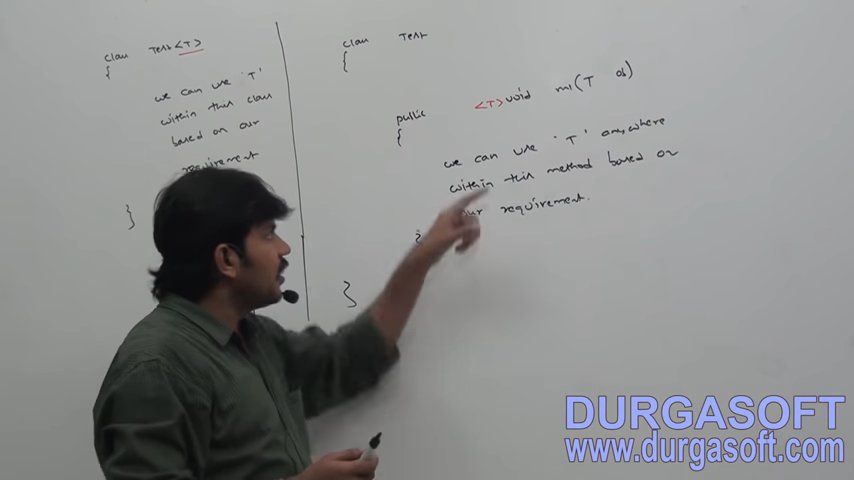 class Test<T>
{
we can use 'T'
within this class
based on our
requirement
}
class Test
{
public <T>void m1(T ob)
{
we can use 'T' anywhere
within this method based on
our requirement.
}
}
DURGASOFT
www.durgasoft.com